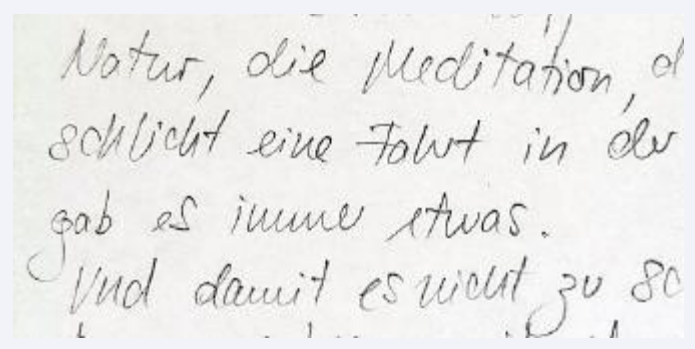 Natur, die Meditation, d
schlicht eine Fahrt in der
gab es immer etwas.
Und damit es nicht zu sc